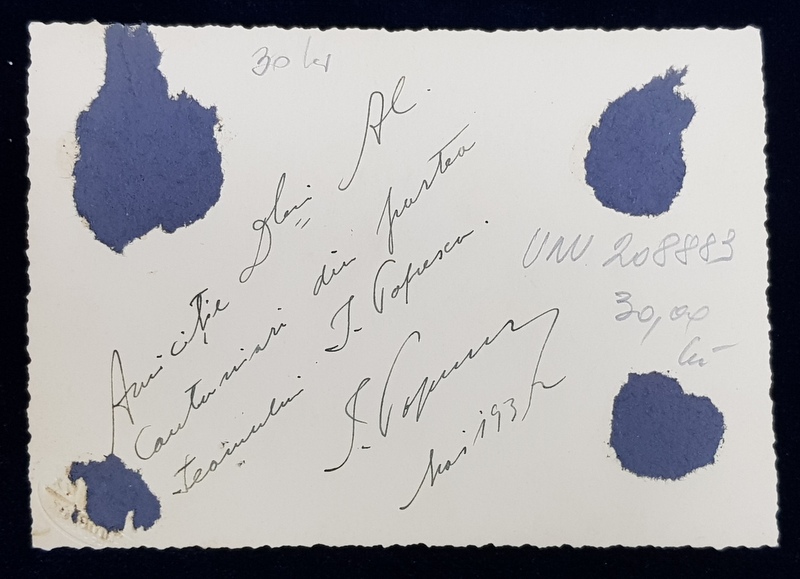 30 lei
Amiciție Dlui Al.
Cantuniari din partea
teamului I. Popescu.
I. Popescu
Mai 193
UNV. 208883
30,00
lei